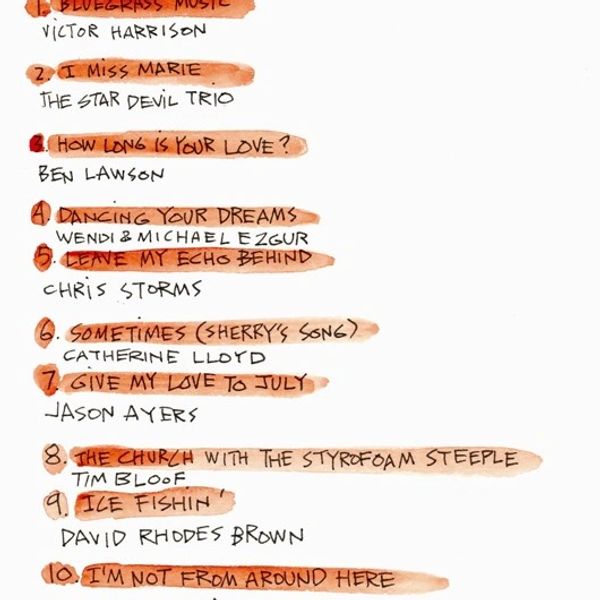 1. BLUEGRASS MUSIC
VICTOR HARRISON
2. I MISS MARIE
THE STAR DEVIL TRIO
3. HOW LONG IS YOUR LOVE?
BEN LAWSON
4. DANCING YOUR DREAMS
WENDI & MICHAEL EZGUR
5. LEAVE MY ECHO BEHIND
CHRIS STORMS
6. SOMETIMES (SHERRY'S SONG)
CATHERINE LLOYD
7. GIVE MY LOVE TO JULY
JASON AYERS
8. THE CHURCH WITH THE STYROFOAM STEEPLE
TIM BLOOF
9. ICE FISHIN'
DAVID RHODES BROWN
10. I'M NOT FROM AROUND HERE